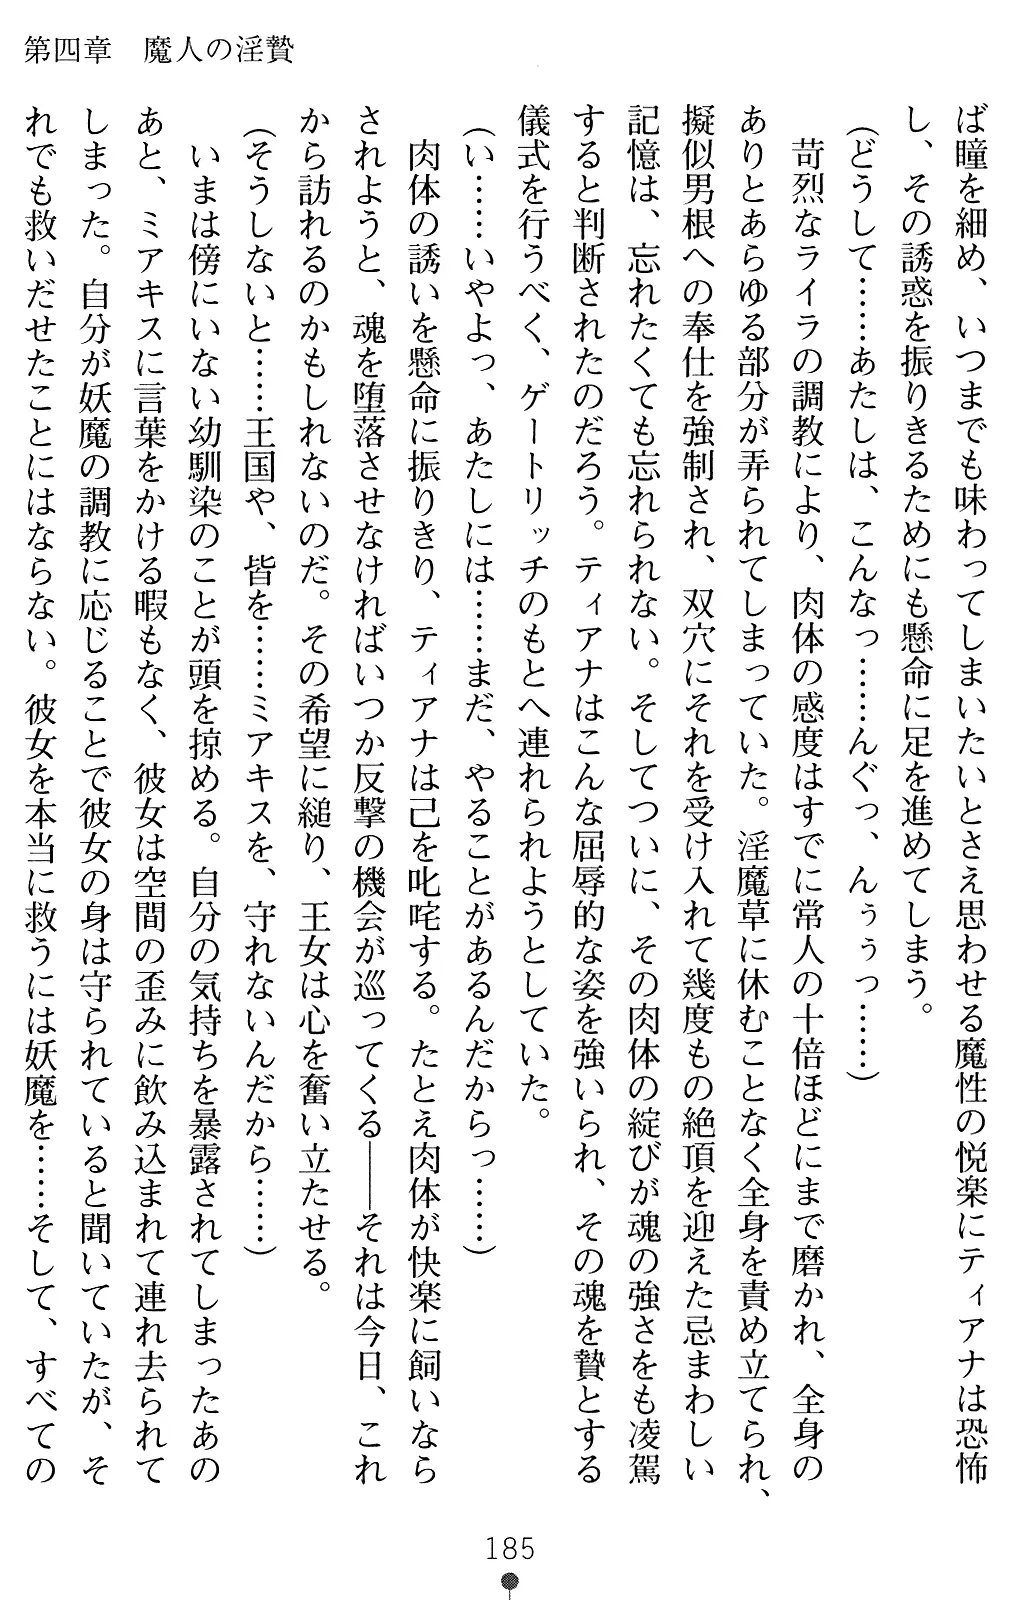 第四章　魔人の淫贄
ば瞳を細め、いつまでも味わってしまいたいとさえ思わせる魔性の悦楽にティアナは恐怖
し、その誘惑を振りきるためにも懸命に足を進めてしまう。
（どうして……あたしは、こんなっ……んぐっ、んぅぅっ……）
　苛烈なライラの調教により、肉体の感度はすでに常人の十倍ほどにまで磨かれ、全身の
ありとあらゆる部分が弄られてしまっていた。淫魔草に休むことなく全身を責め立てられ、
擬似男根への奉仕を強制され、双穴にそれを受け入れて幾度もの絶頂を迎えた忌まわしい
記憶は、忘れたくても忘れられない。そしてついに、その肉体の綻びが魂の強さをも凌駕
すると判断されたのだろう。ティアナはこんな屈辱的な姿を強いられ、その魂を贄とする
儀式を行うべく、ゲートリッチのもとへ連れられようとしていた。
（い……いやよっ、あたしには……まだ、やることがあるんだからっ……）
　肉体の誘いを懸命に振りきり、ティアナは己を叱咤する。たとえ肉体が快楽に飼いなら
されようと、魂を堕落させなければいつか反撃の機会が巡ってくる――それは今日、これ
から訪れるのかもしれないのだ。その希望に縋り、王女は心を奮い立たせる。
（そうしないと……王国や、皆を……ミアキスを、守れないんだから……）
　いまは傍にいない幼馴染のことが頭を掠める。自分の気持ちを暴露されてしまったあの
あと、ミアキスに言葉をかける暇もなく、彼女は空間の歪みに飲み込まれて連れ去られて
しまった。自分が妖魔の調教に応じることで彼女の身は守られていると聞いていたが、そ
れでも救いだせたことにはならない。彼女を本当に救うには妖魔を……そして、すべての
185